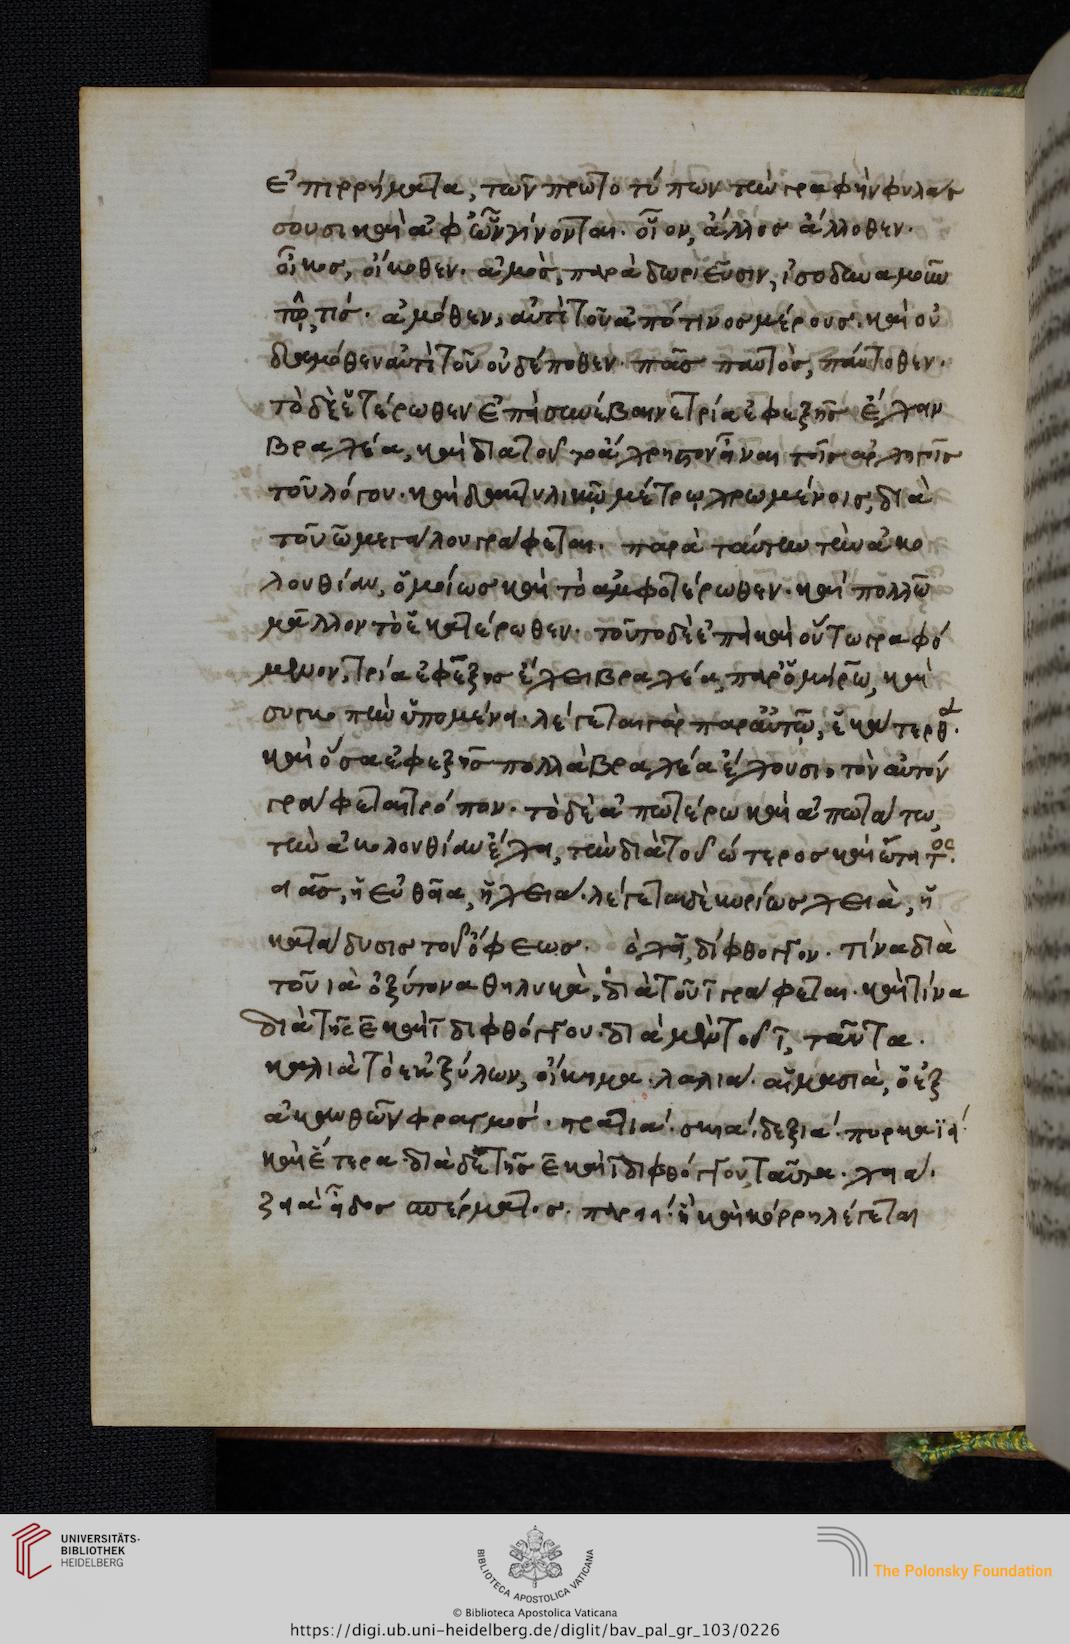 ἐπιρρήματα, τῶν πρωτοτύπων τὴν γραφὴν φυλάσ
σουσι καὶ ἀφ' ὧν γίνονται. οἷον, ἄλλος ἄλλοθεν.
οἶκος, οἴκοθεν. ἀμὸς, παρὰ δωριεῦσιν, ἰσοδυναμοῦν
τῷ, τίς. ἀμόθεν, ἀντὶ τοῦ ἀπό τινος μέρους. καὶ οὐ
δαμόθεν ἀντὶ τοῦ οὐδέποθεν. πᾶς παντὸς, πάντοθεν.
τὸ δὲ ἑτέρωθεν ἐπεὶ συνέβαινε τρία ἐφεξῆς ἔχειν
βραχέα, καὶ διὰ τοῦ εἶναι τοῖς
τοῦ λόγου. καὶ δακτυλικῷ μέτρῳ χρωμένοις, διὰ
τοῦ ω μεγάλου γράφεται. παρὰ ταύτην τὴν ἀκο
λουθίαν, ὁμοίως καὶ τὸ ἀμφοτέρωθεν. καὶ πολλῷ
μᾶλλον τὸ ἑκατέρωθεν. τοῦτο δὲ ἐπεὶ καὶ οὕτω γραφό
μενον, τρία ἐφεξῆς ἔχει βραχέα, παρ' ὁμήρῳ, καὶ
συγκοπὴν ὑπομένει. λέγεται γὰρ παρ' αὐτῷ, ἑκάτερθε.
καὶ ὅσα ἐφεξῆς πολλὰ βραχέα ἔχουσι, τὸν αὐτόν
γράφεται τρόπον. τὸ δὲ ἀπωτέρω καὶ ἀπωτάτω,
τὴν ἀκολουθίαν ἔχει, τῶν διὰ τοῦ ώτερος καὶ ώτατος.
ἡ εὐθεῖα, ἡ χειά. λέγεται δὲ κυρίως χειὰ, ἡ
κατάδυσις τοῦ ὄφεως. δίφθογγον. τίνα διὰ
τοῦ ια ὀξύτονα θηλυκὰ, διὰ τοῦ ι γράφεται. καὶ τίνα
διὰ τῆς ε καὶ ι διφθόγγου. διὰ μὲν τοῦ ι, ταῦτα.
καλιὰ τὸ ἐκ ξύλων, οἴκημα. λαλιά. αἱμασιὰ, ὁ ἐξ
ἀκανθῶν φραγμός. πρασιά. σκιά. δεξιά. πυρκαϊά.
καὶ ἕτερα. διὰ δὲ τῆς ε καὶ ι διφθόγγου, ταῦτα. χειά.
ζειὰ εἶδος σπέρματος. παρειά. ἡ καὶ κόρρη λέγεται
UNIVERSITÄTS-
BIBLIOTHEK
HEIDELBERG
BIBLIOTECA APOSTOLICA VATICANA
The Polonsky Foundation
© Biblioteca Apostolica Vaticana
https://digi.ub.uni-heidelberg.de/diglit/bav_pal_gr_103/0226